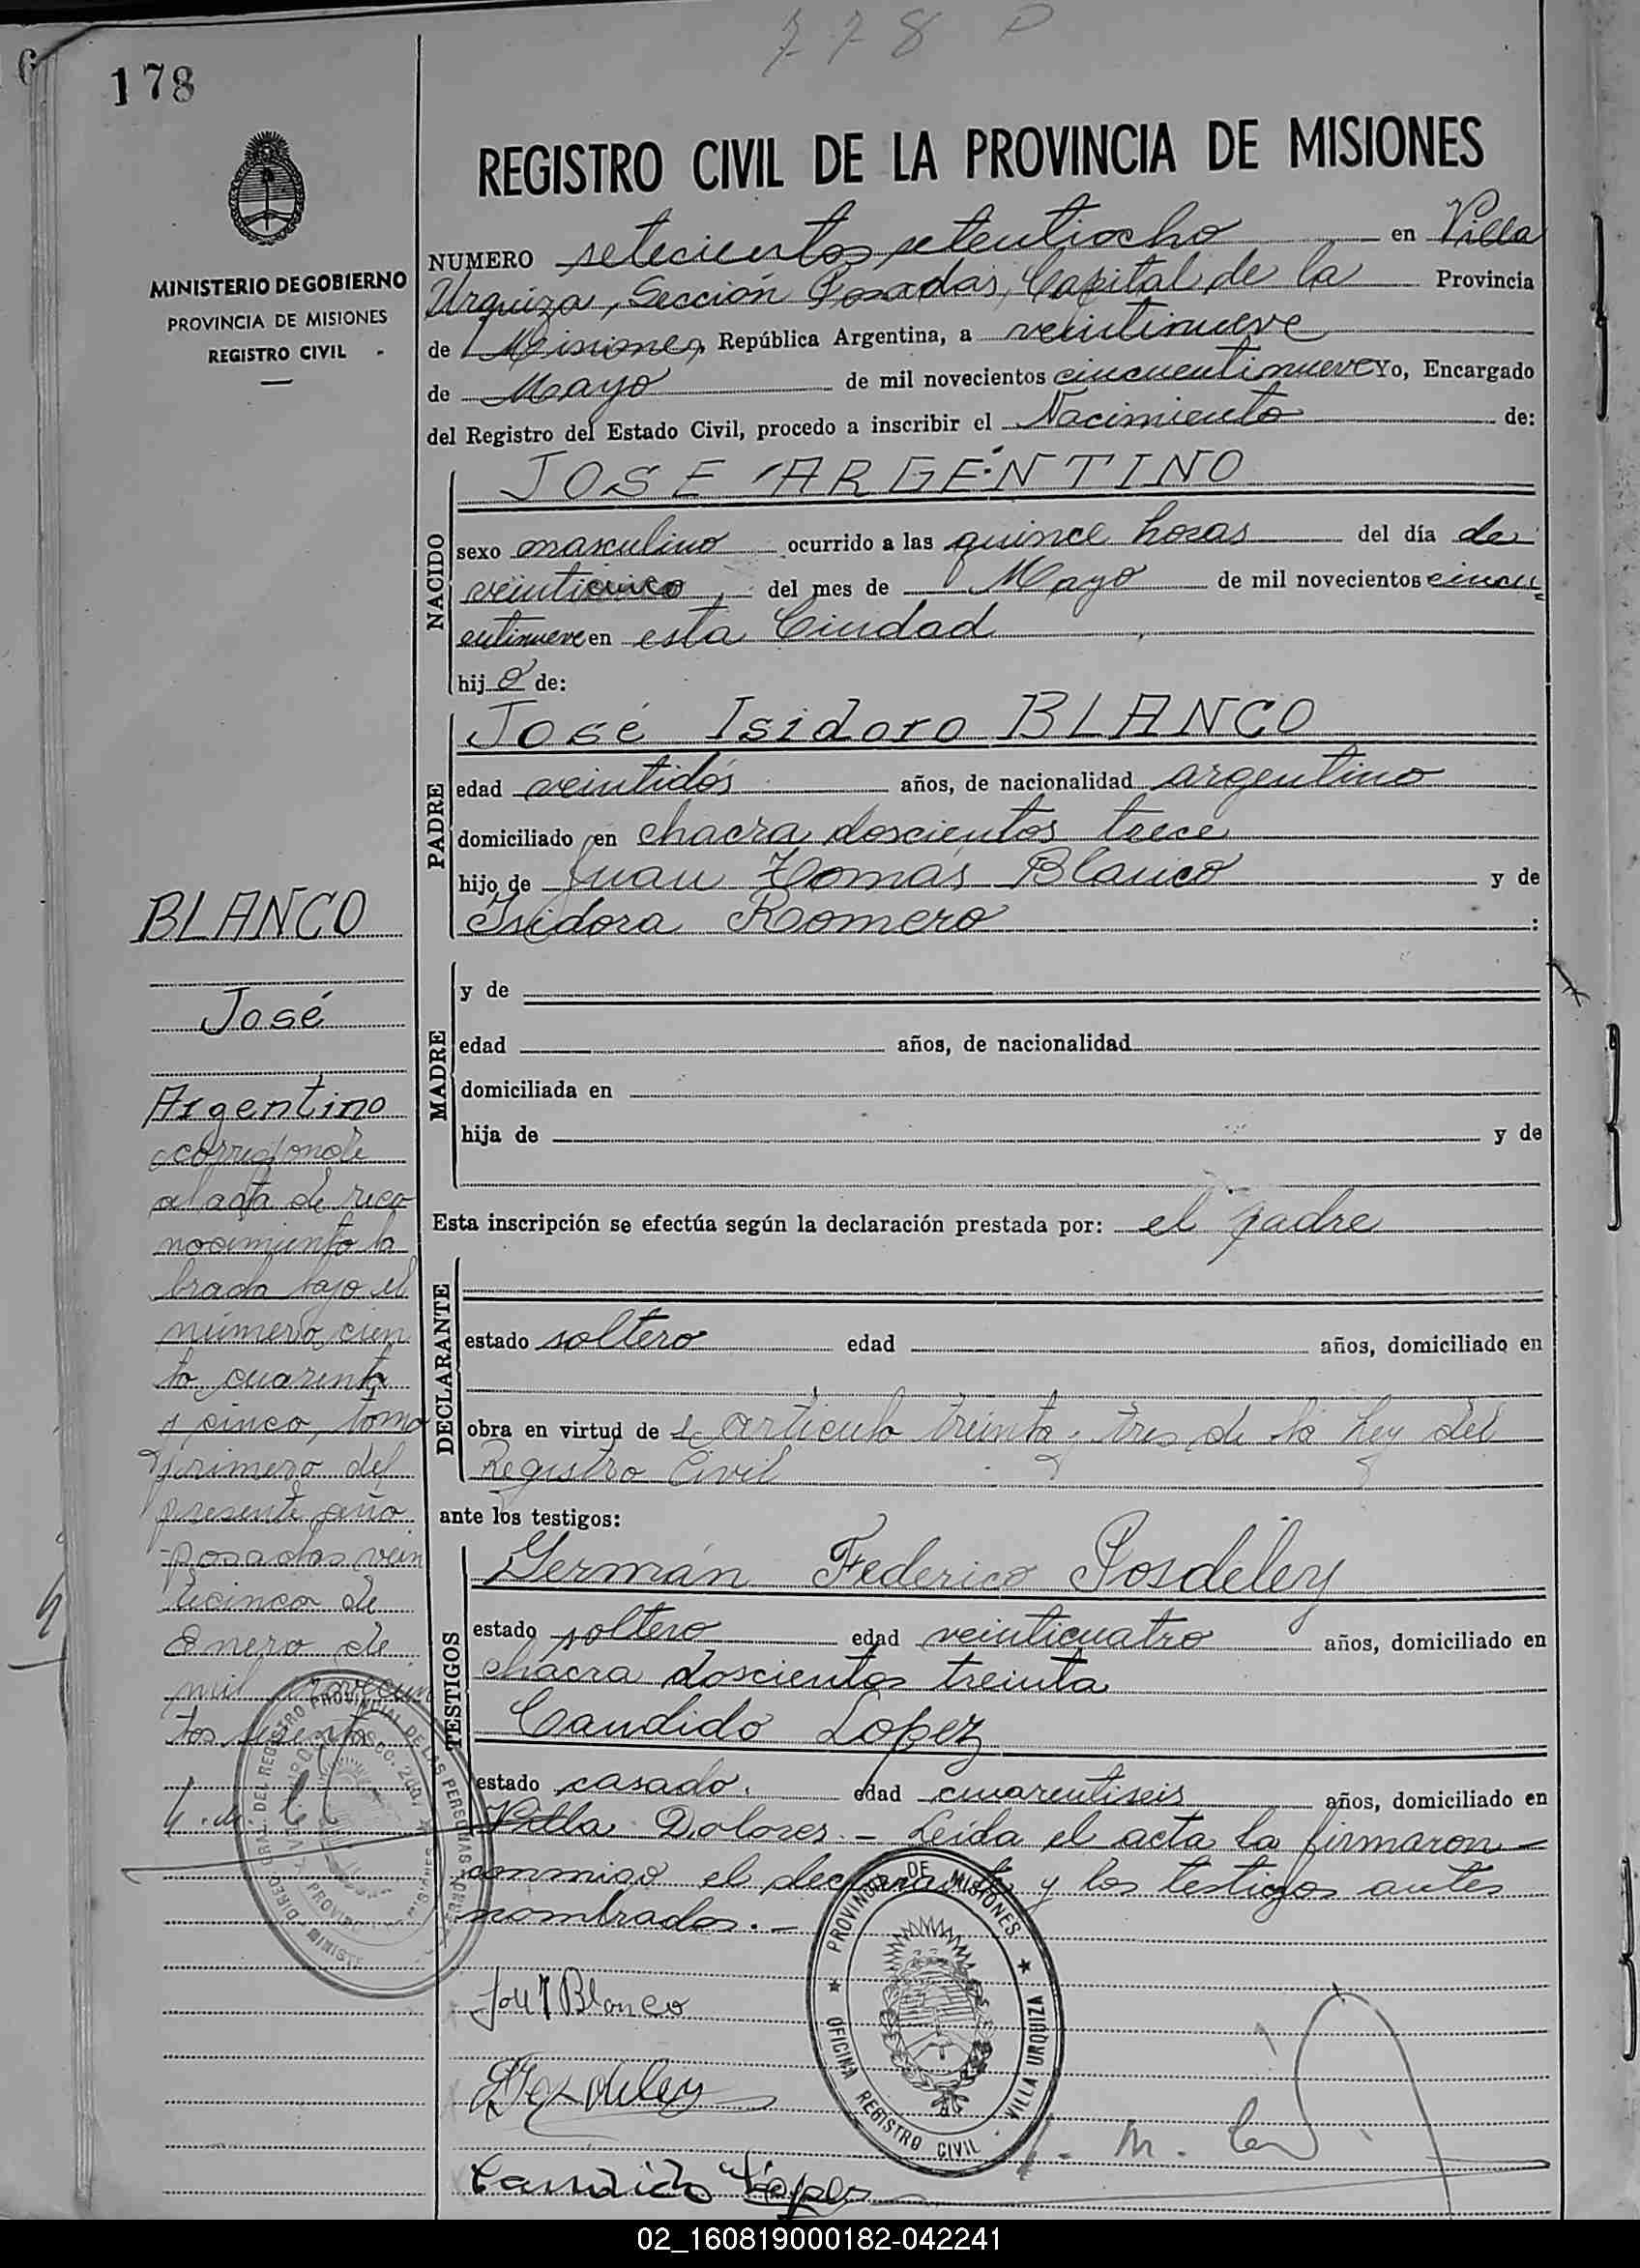 778 P
178
REGISTRO CIVIL DE LA PROVINCIA DE MISIONES
MINISTERIO DE GOBIERNO
PROVINCIA DE MISIONES
REGISTRO CIVIL
NUMERO setecientos setentiocho en Villa
Urquiza, Sección Posadas, Capital de la Provincia
de Misiones, República Argentina, a veintinueve
de Mayo de mil novecientos cincuentinueve Yo, Encargado
del Registro del Estado Civil, procedo a inscribir el Nacimiento de:
NACIDO
JOSE ARGENTINO
sexo masculino ocurrido a las quince horas del día de
veinticinco, del mes de Mayo de mil novecientos cincu
entinueve en esta Ciudad
hijo de:
PADRE
José Isidoro BLANCO
edad veintidós años, de nacionalidad argentino
domiciliado en chacra doscientos trece
hijo de Juan Tomás Blanco y de
Isidora Romero :
MADRE
y de
edad años, de nacionalidad
domiciliada en
hija de y de
Esta inscripción se efectúa según la declaración prestada por: el padre
DECLARANTE
estado soltero edad años, domiciliado en
obra en virtud de articulo treinta y tres de la Ley del
Registro Civil
ante los testigos:
TESTIGOS
Germán Federico Posdeley
estado soltero edad veinticuatro años, domiciliado en
chacra doscientos treinta
Candido Lopez
estado casado. edad cuarentiseis años, domiciliado en
Villa Dolores. – Leída el acta la firmaron
conmigo el declarante y los testigos antes
nombrados. –
BLANCO
José
Argentino
corresponde
al acta de reco
nocimiento la
brada bajo el
número cien
to cuarenta
y cinco, tomo
primero del
presente año
posadas vein
ticinco de
Enero de
mil novecien
tos sesenta
Blanco
Posdeley
Candido López
PROVINCIA DE MISIONES
OFICINA REGISTRO CIVIL - VILLA URQUIZA
02_160819000182-042241